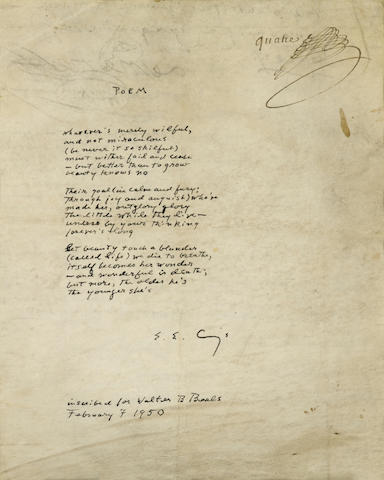 POEM
whatever's merely wilful,
and not miraculous
(be never it so skilful)
must wither fail and cease
— but better than to grow
beauty knows no
their goal(in calm and fury:
through joy and anguish)who've
made her, outglory glory
the little while they live —
unless by your thinking
forever's long
let beauty touch a blunder
(called life) we die to breathe,
itself becomes her wonder
— and wonderful is death;
but more, the older he's
the younger she's
E. E.
inscribed for Walter B Beals
February 7 1950